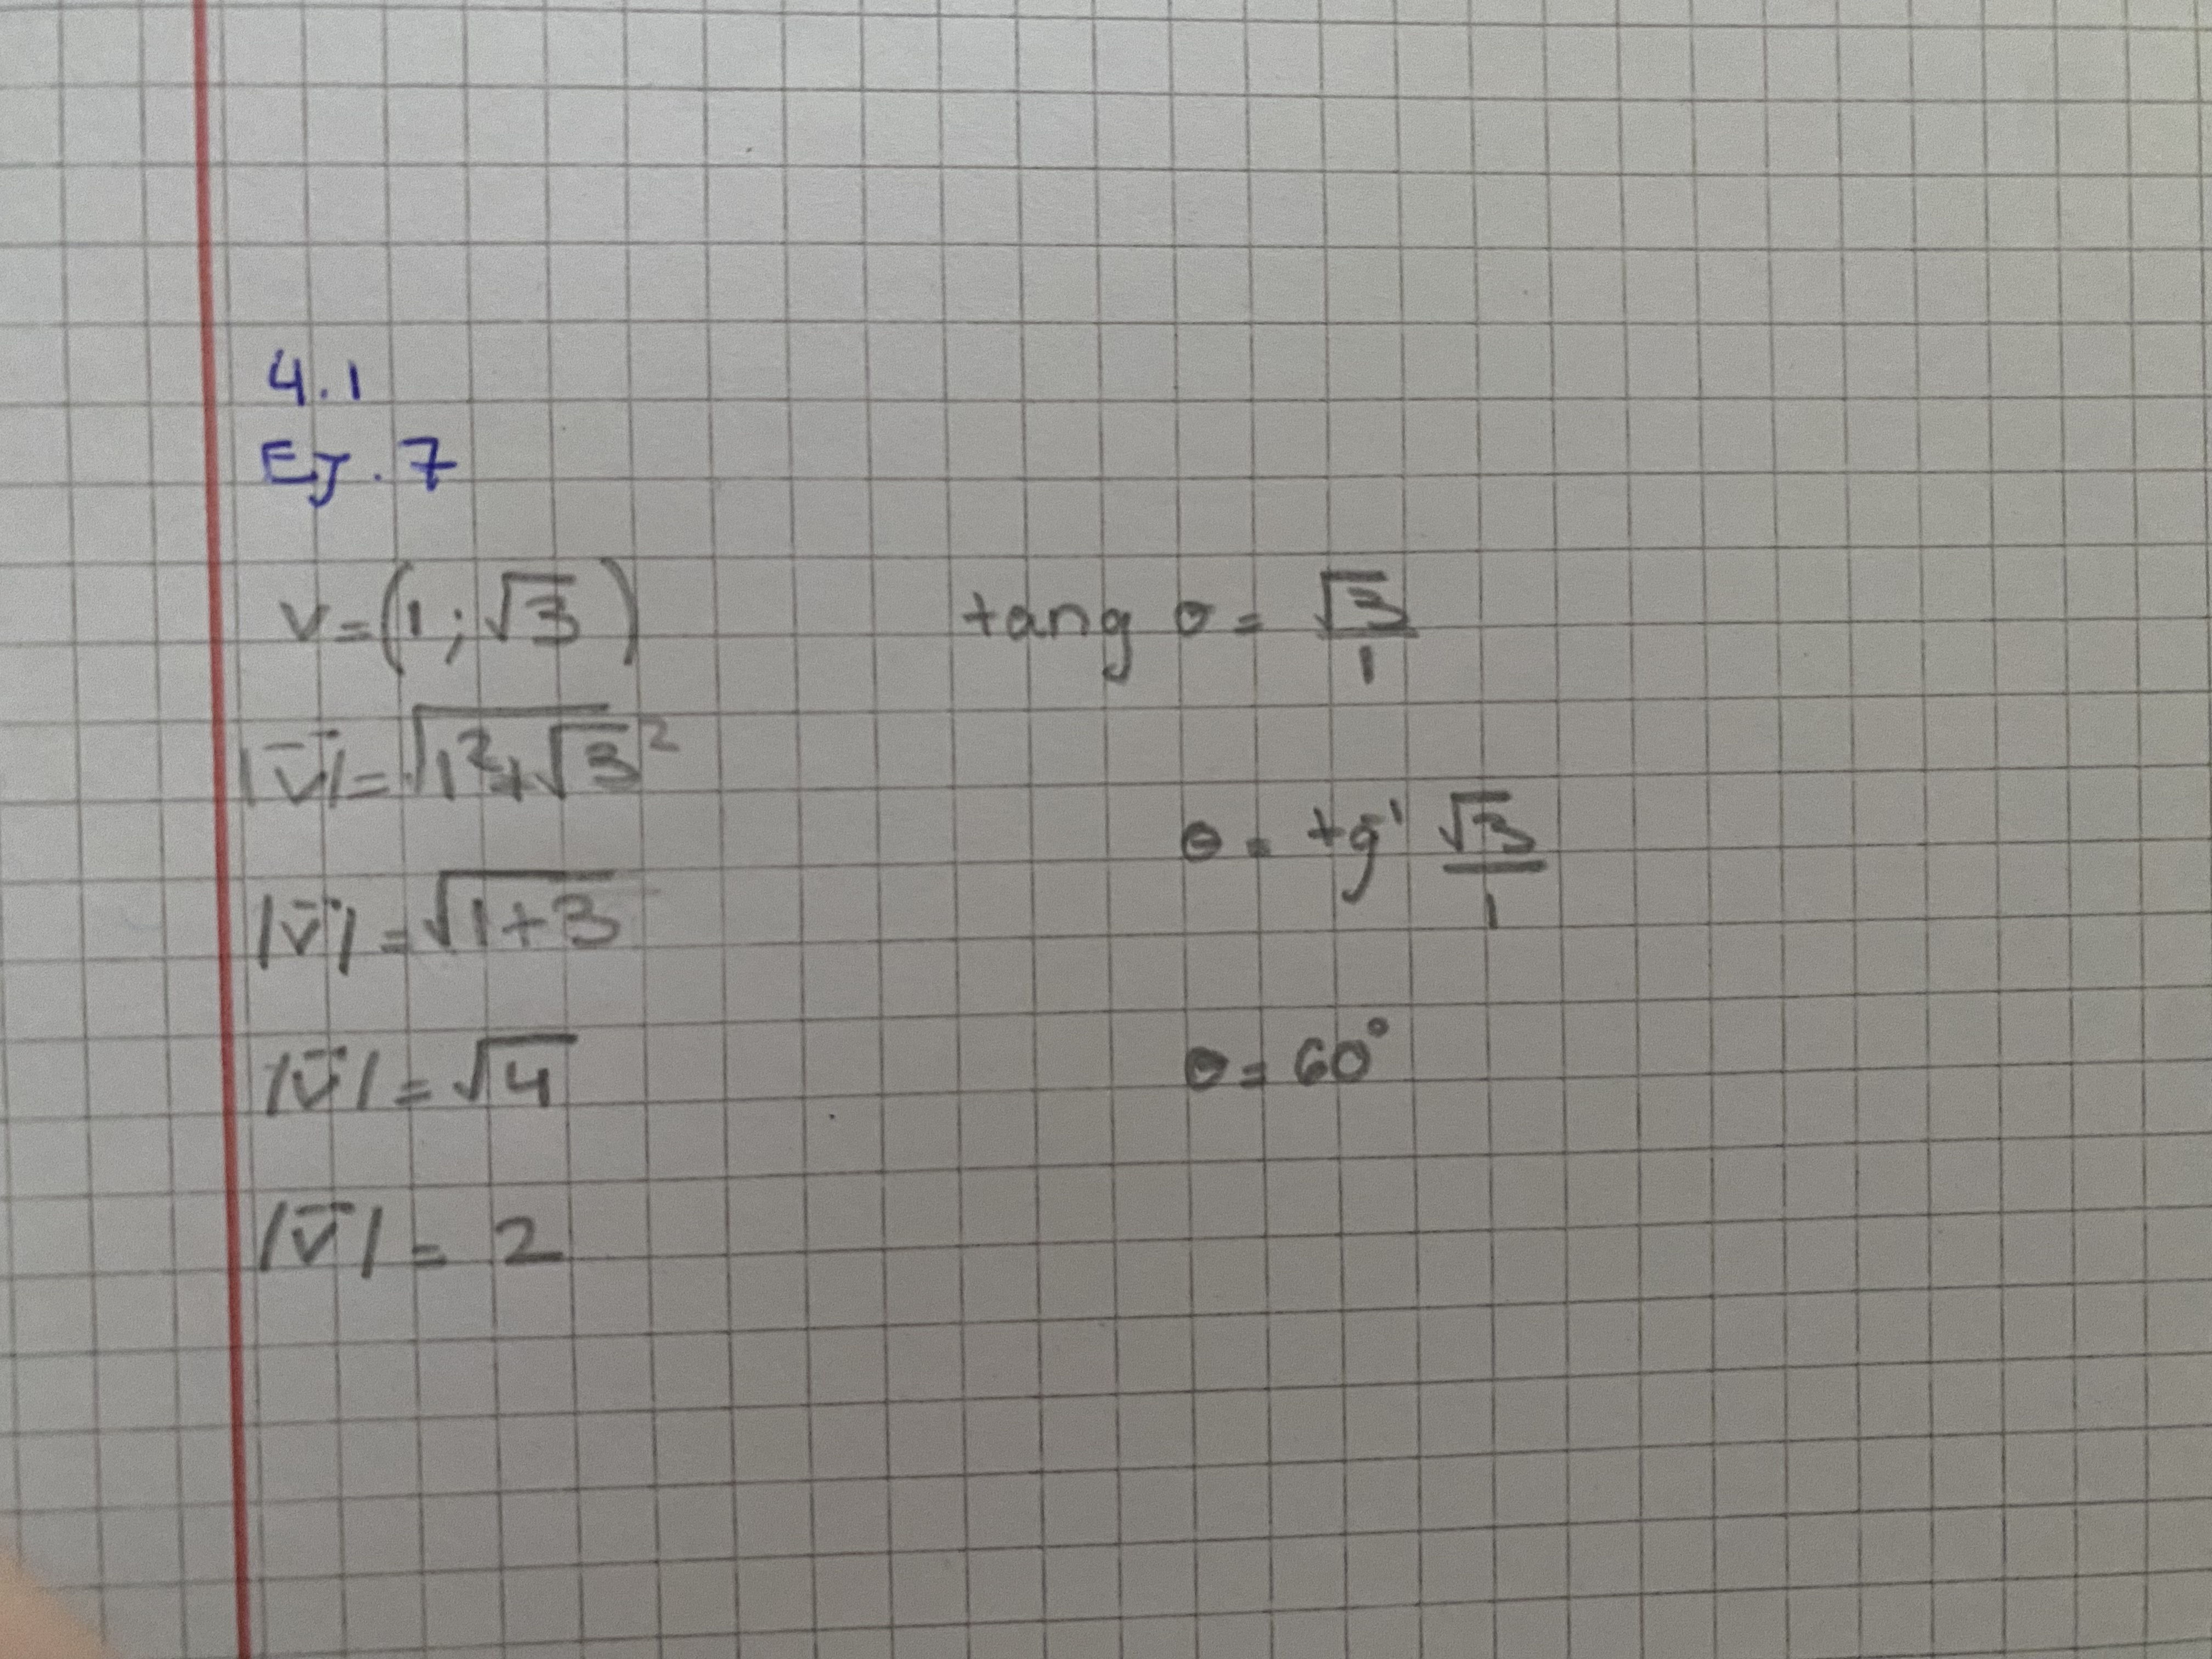 4.1
Ej. 7
v = (1; √3)
|v⃗| = √1² + √3²
|v⃗| = √1+3
|v⃗| = √4
|v⃗| = 2
tang θ = √3/1
θ = tg⁻¹ √3/1
θ = 60°